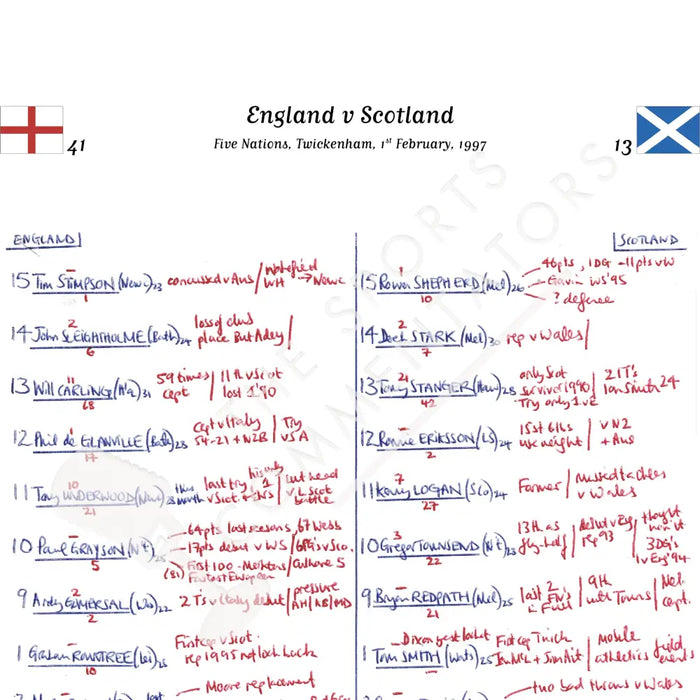 England v Scotland
41
Five Nations, Twickenham, 1st February, 1997
13
THE SPORTS
COMMENTATORS
ENGLAND
15 Tim STIMPSON (Newc) 23
1
concussed v Aus /
WH → Newc
14 John SLEIGHTHOLME (Bath) 24
2
6
loss of club
place But Adey /
13 Will CARLING (H'q) 31
11
68
59 times
capt /
11th v Scot
lost 1 '90
12 Phil de GLANVILLE (Bath) 28
17
Capt v Italy
54-21 + NZB /
Try
v SA
11 Tony UNDERWOOD (Newc) 28
10
21
last try, 1
v Scot
battle
10 Paul GRAYSON (N't) 25
5
64pts last season
17pts debut v WS /
First 100 - Mehrtens /
Fastest European
(81)
9 Andy GOMERSAL (Wa) 22
2
2
2 T's v Italy debut /
pressure
AH / KB / MD
1 Graham ROWNTREE (Lei) 25
10
First cap v Scot.
rep 1995 not look back
Moore replacement
SCOTLAND
15 Rowen SHEPHERD (Mel) 26
1
10
46pts, 1DG - 11pts v W
Gavin WS '95
? defence
14 Derek STARK (Mel) 30
2
7
rep v Wales /
13 Tony STANGER (Haw) 28
21
42
only Scot
survivor 1990 /
Try only 1 v E
21T's
Ian Smith 24
12 Ronnie ERIKSSON (LS) 24
2
15st 6lbs
use weight /
v NZ
+ Aus
11 Kenny LOGAN (Sco) 24
7
27
Farmer /
Missed tackles
v Wales
10 Gregor TOWNSEND (N't) 23
3
22
13th as
fly-half /
debut v Eng
rep 93 /
thought
won it
3DG's
1 v Eng '94
9 Bryan REDPATH (Mel) 25
21
last 2
Mel.
capt.
1 Tom SMITH (Wats) 25
First cap Trick
mobile
athletics
field
events
two bad throws v Wales